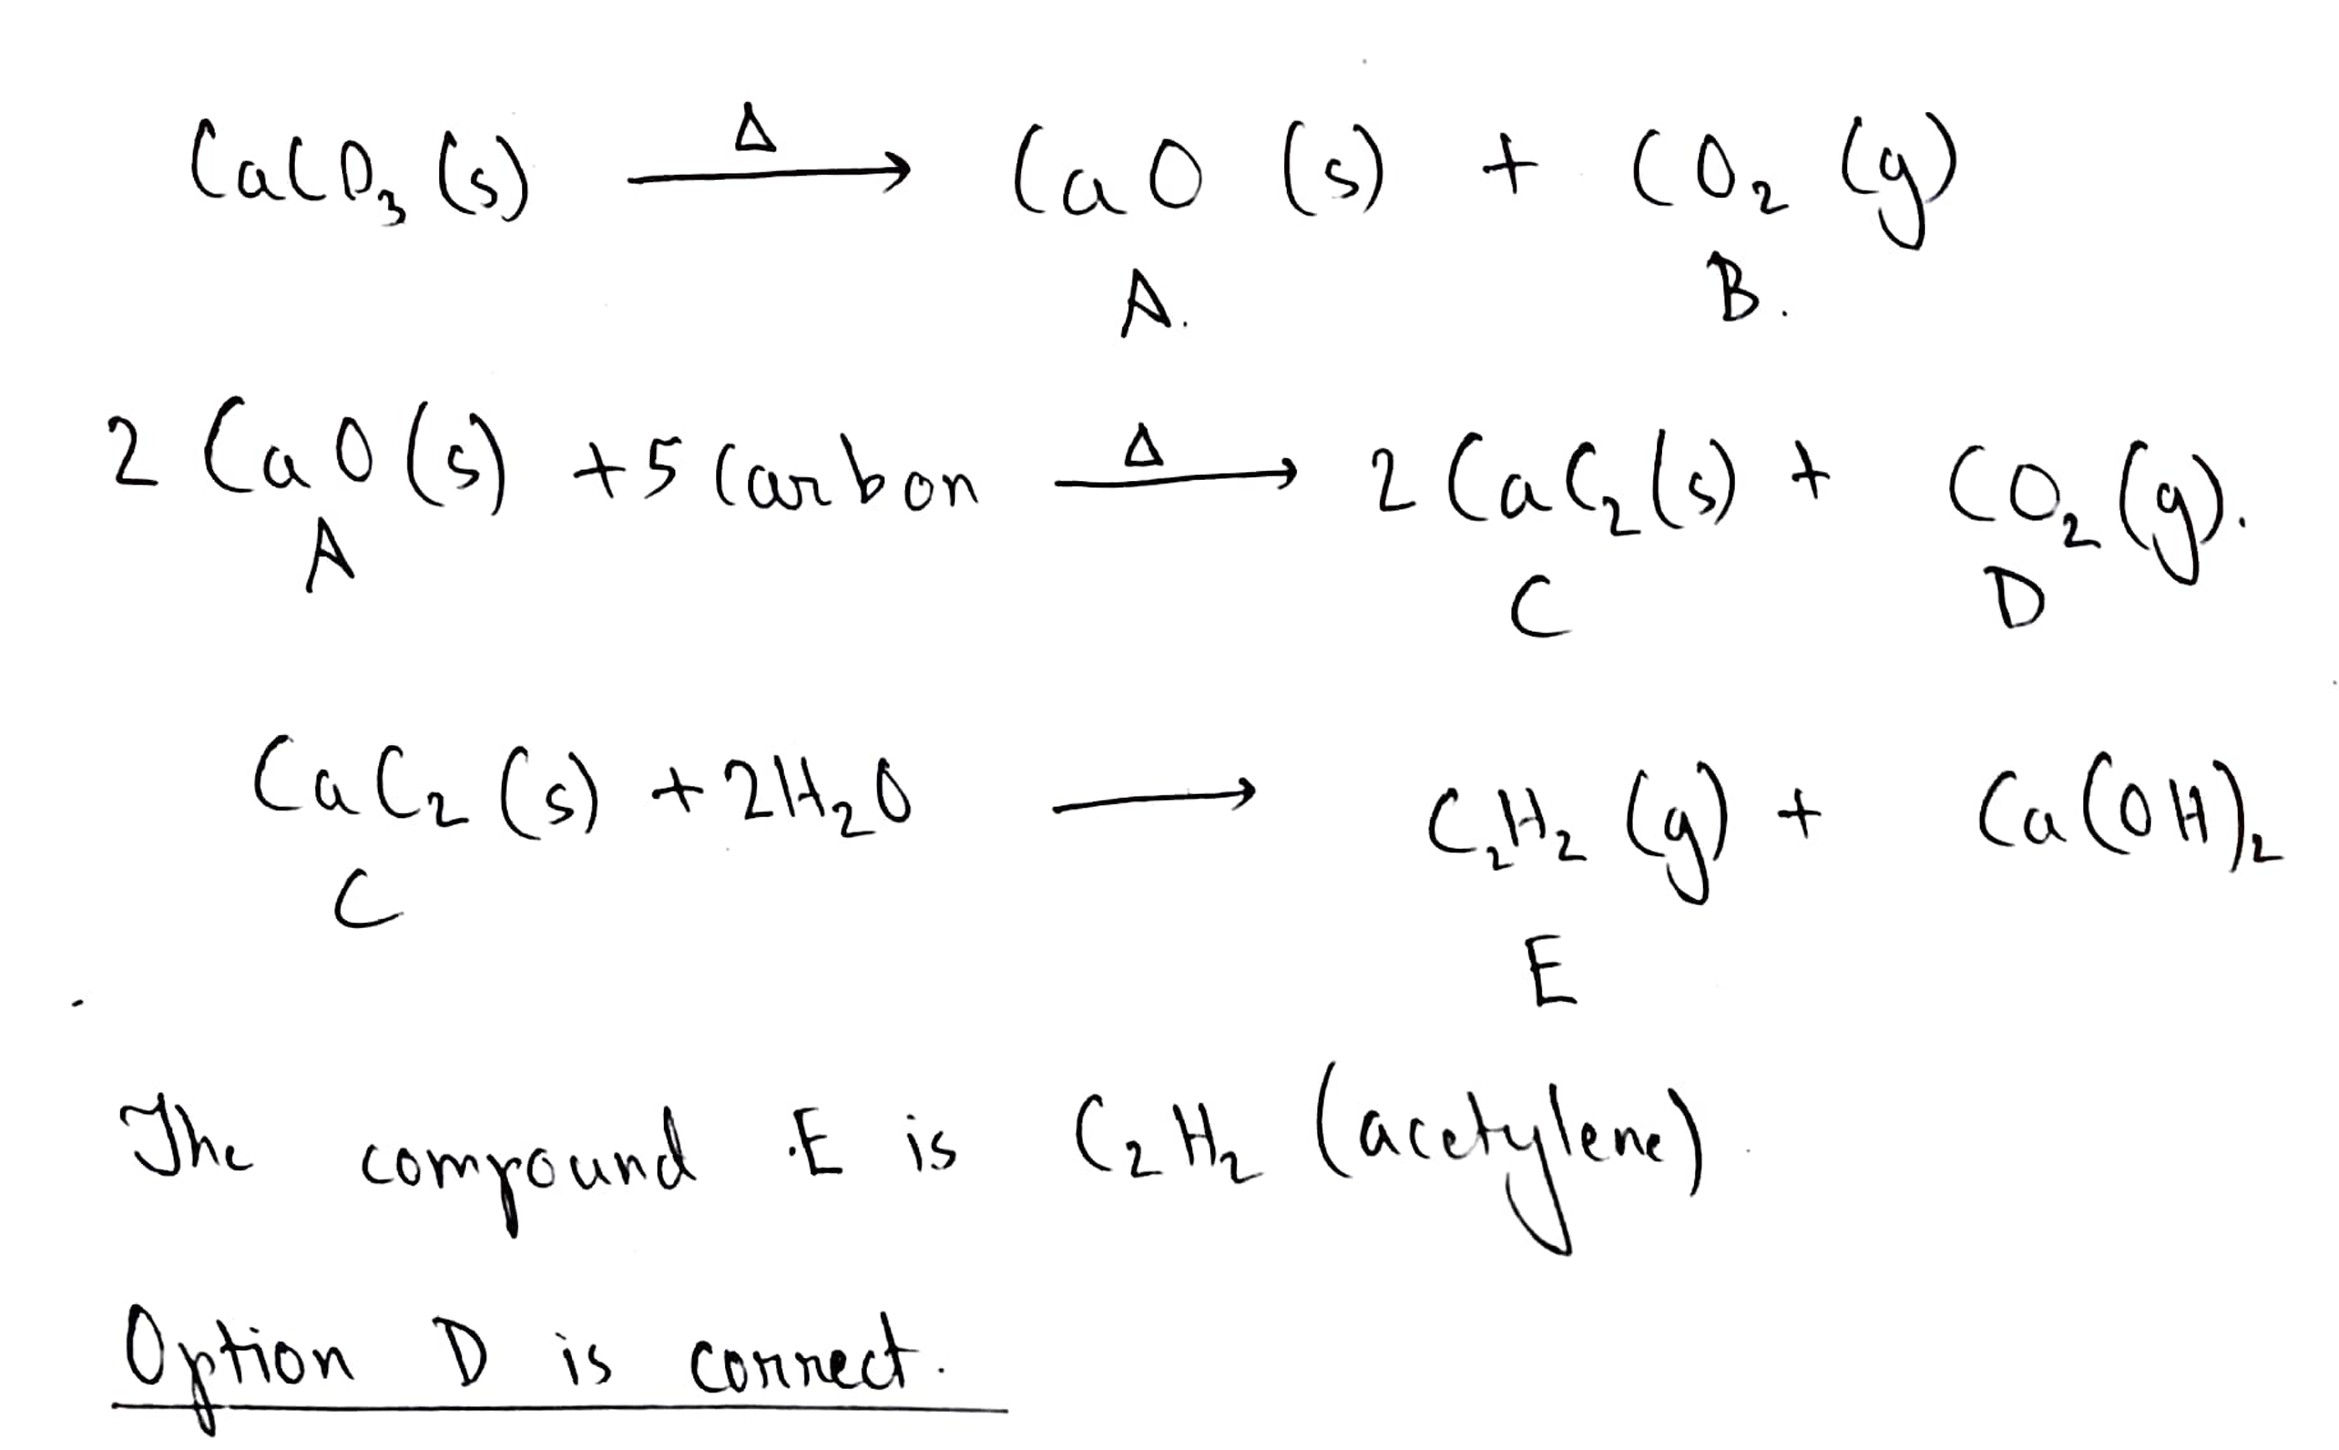 CaCO₃ (s) —Δ→ CaO (s) + CO₂ (g)
A. B.
2 CaO (s) + 5 Carbon —Δ→ 2 CaC₂ (s) + CO₂ (g).
A C D
CaC₂ (s) + 2H₂O → C₂H₂ (g) + Ca(OH)₂
C
E
The compound E is C₂H₂ (acetylene)
Option D is correct.